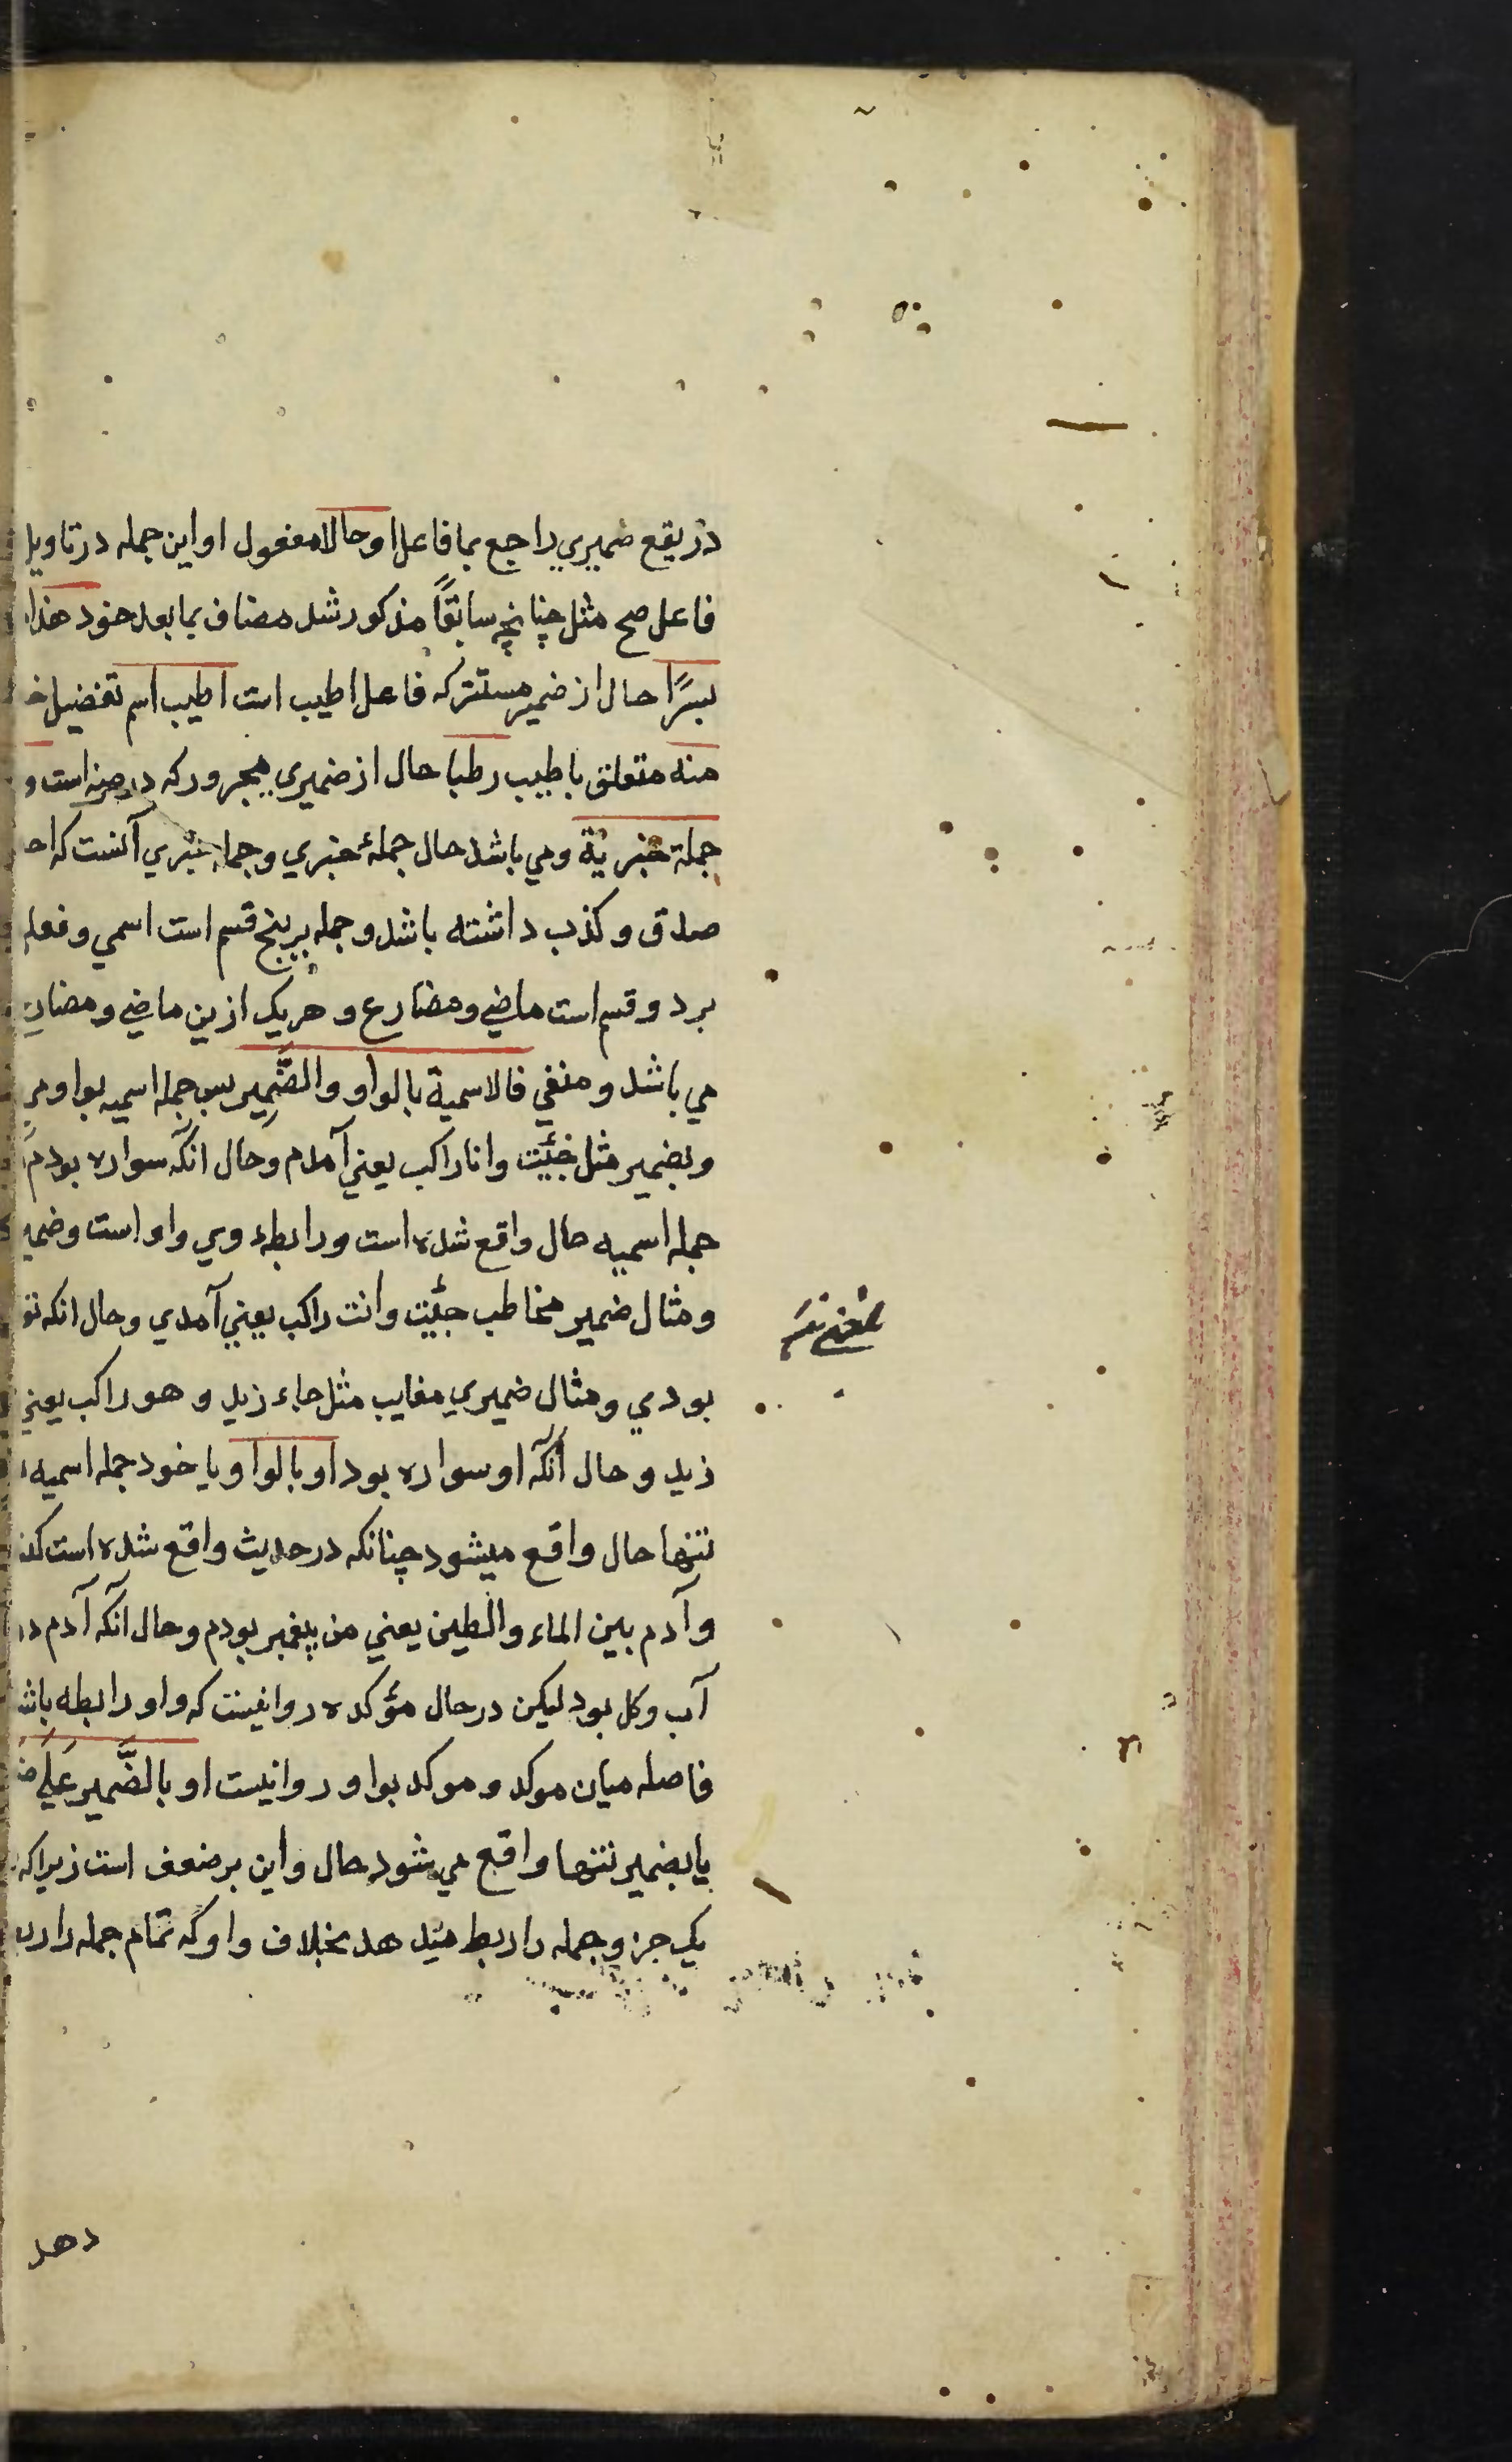 در یقع ضمیري راجع بما فاعل او حالا مفعول او این جمله در تاویل
فاعل صح مثل چنانچه سابقاً مذکور شد مضاف بما بعد خود هذا
بسرًا حال از ضمیر مستتر که فاعل اطیب است اطیب اسم تفضیل
منه متعلق باطیب رطبا حال از ضمیري مجرور که در منه است و
جملة خبریة ومي باشد حال جملهٔ خبري و جمله خبري آنست که
صدق و کذب داشته باشد و جمله بر پنج قسم است اسمي و فعلي
بر دو قسم است ماضي و مضارع و هر یک ازین ماضي و مضارع
مي باشد و منفي فالاسمیة بالواو والضَّمِیر پس جمله اسمیه بواو
و بضمیر مثل جئت وانا راکب یعني آمدم و حال آنکه سواره بودم
جمله اسمیه حال واقع شده است و رابطهٔ وي واو است و ضمیر
و مثال ضمیر مخاطب جئت وانت راکب یعني آمدي و حال انکه تو
بودي و مثال ضمیري مغایب مثل جاء زید و هو راکب یعني
زید و حال آنکه او سواره بود او بالواو یا خود جمله اسمیه
تنها حال واقع میشود چنانکه در حدیث واقع شده است
وآدم بین الماء والطین یعني من پیغمبر بودم و حال آنکه آدم در
آب و کل بود لیکن در حال مؤکده روا نیست که واو رابطه باشد
فاصله میان موکد و موکد بواو روا نیست او بالضَّمیر عَلَي
یا بضمیر تنها واقع مي شود حال و این بر ضعف است زیرا که
یک جزو جمله را ربط میدهد بخلاف واو که تمام جمله را
دهد